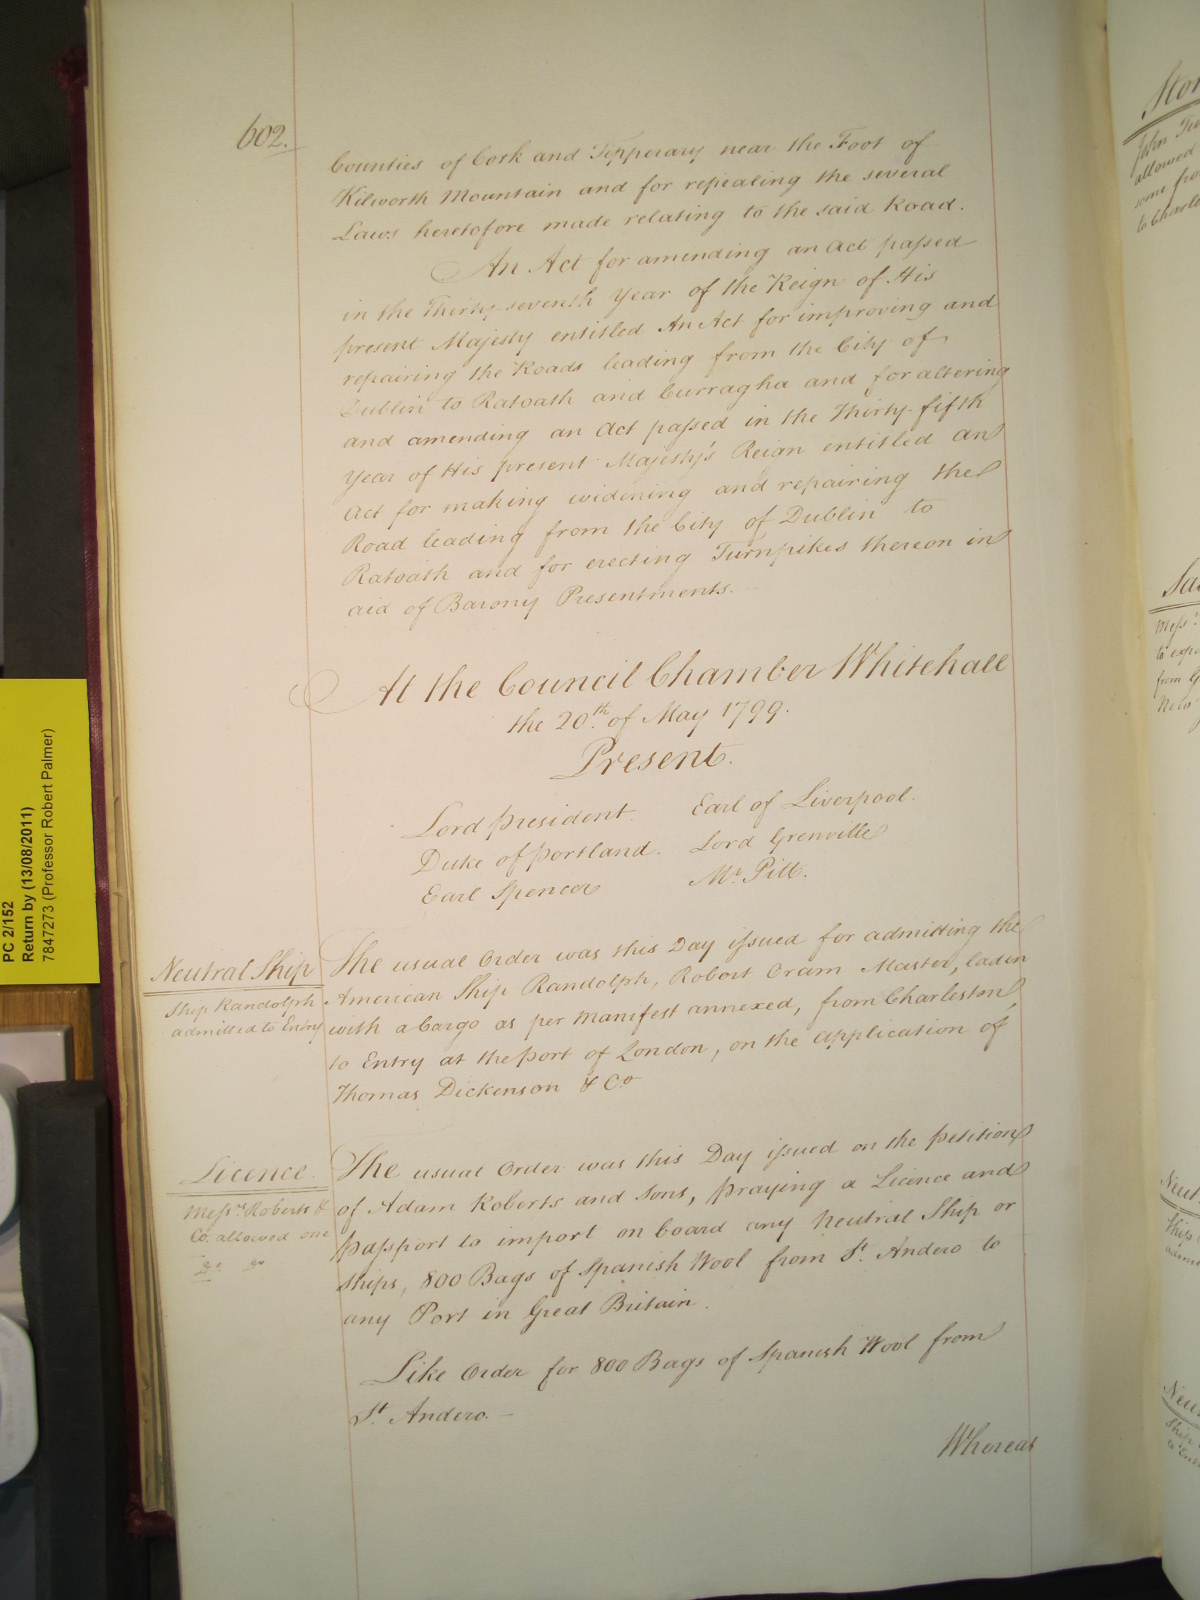 602.
Counties of Cork and Tipperary near the Foot of
Kilworth Mountain and for repealing the several
Laws heretofore made relating to the said Road.
An Act for amending an Act passed
in the Thirty-seventh Year of the Reign of His
present Majesty entitled An Act for improving and
repairing the Roads leading from the City of
Dublin to Ratoath and Curragha and for altering
and amending an Act passed in the Thirty-fifth
Year of His present Majesty's Reign entitled an
Act for making widening and repairing the
Road leading from the City of Dublin to
Ratoath and for erecting Turnpikes thereon in
aid of Barony Presentments. —
At the Council Chamber Whitehall
the 20th of May 1799.
Present.
Lord President. Earl of Liverpool.
Duke of Portland. Lord Grenville
Earl Spencer Mr Pitt.
Neutral Ship
Ship Randolph
admitted to Entry
The usual Order was this Day issued for admitting the
American Ship Randolph, Robert Oram Master, laden
with a Cargo as per Manifest annexed, from Charleston,
to Entry at the Port of London, on the application of
Thomas Dickenson & Co
Licence.
Messrs Roberts &
Co. allowed one
Do do
The usual Order was this Day issued on the petition
of Adam Roberts and Sons, praying a Licence and
passport to import on board any Neutral Ship or
Ships, 800 Bags of Spanish Wool from St Andero to
any Port in Great Britain.
Like Order for 800 Bags of Spanish Wool from
St Andero. —
Whereas
PC 2/152
Return by (13/08/2011)
7847273 (Professor Robert Palmer)
allowed
to Charles
Messrs
to expo
from G
New
Neut
Ship